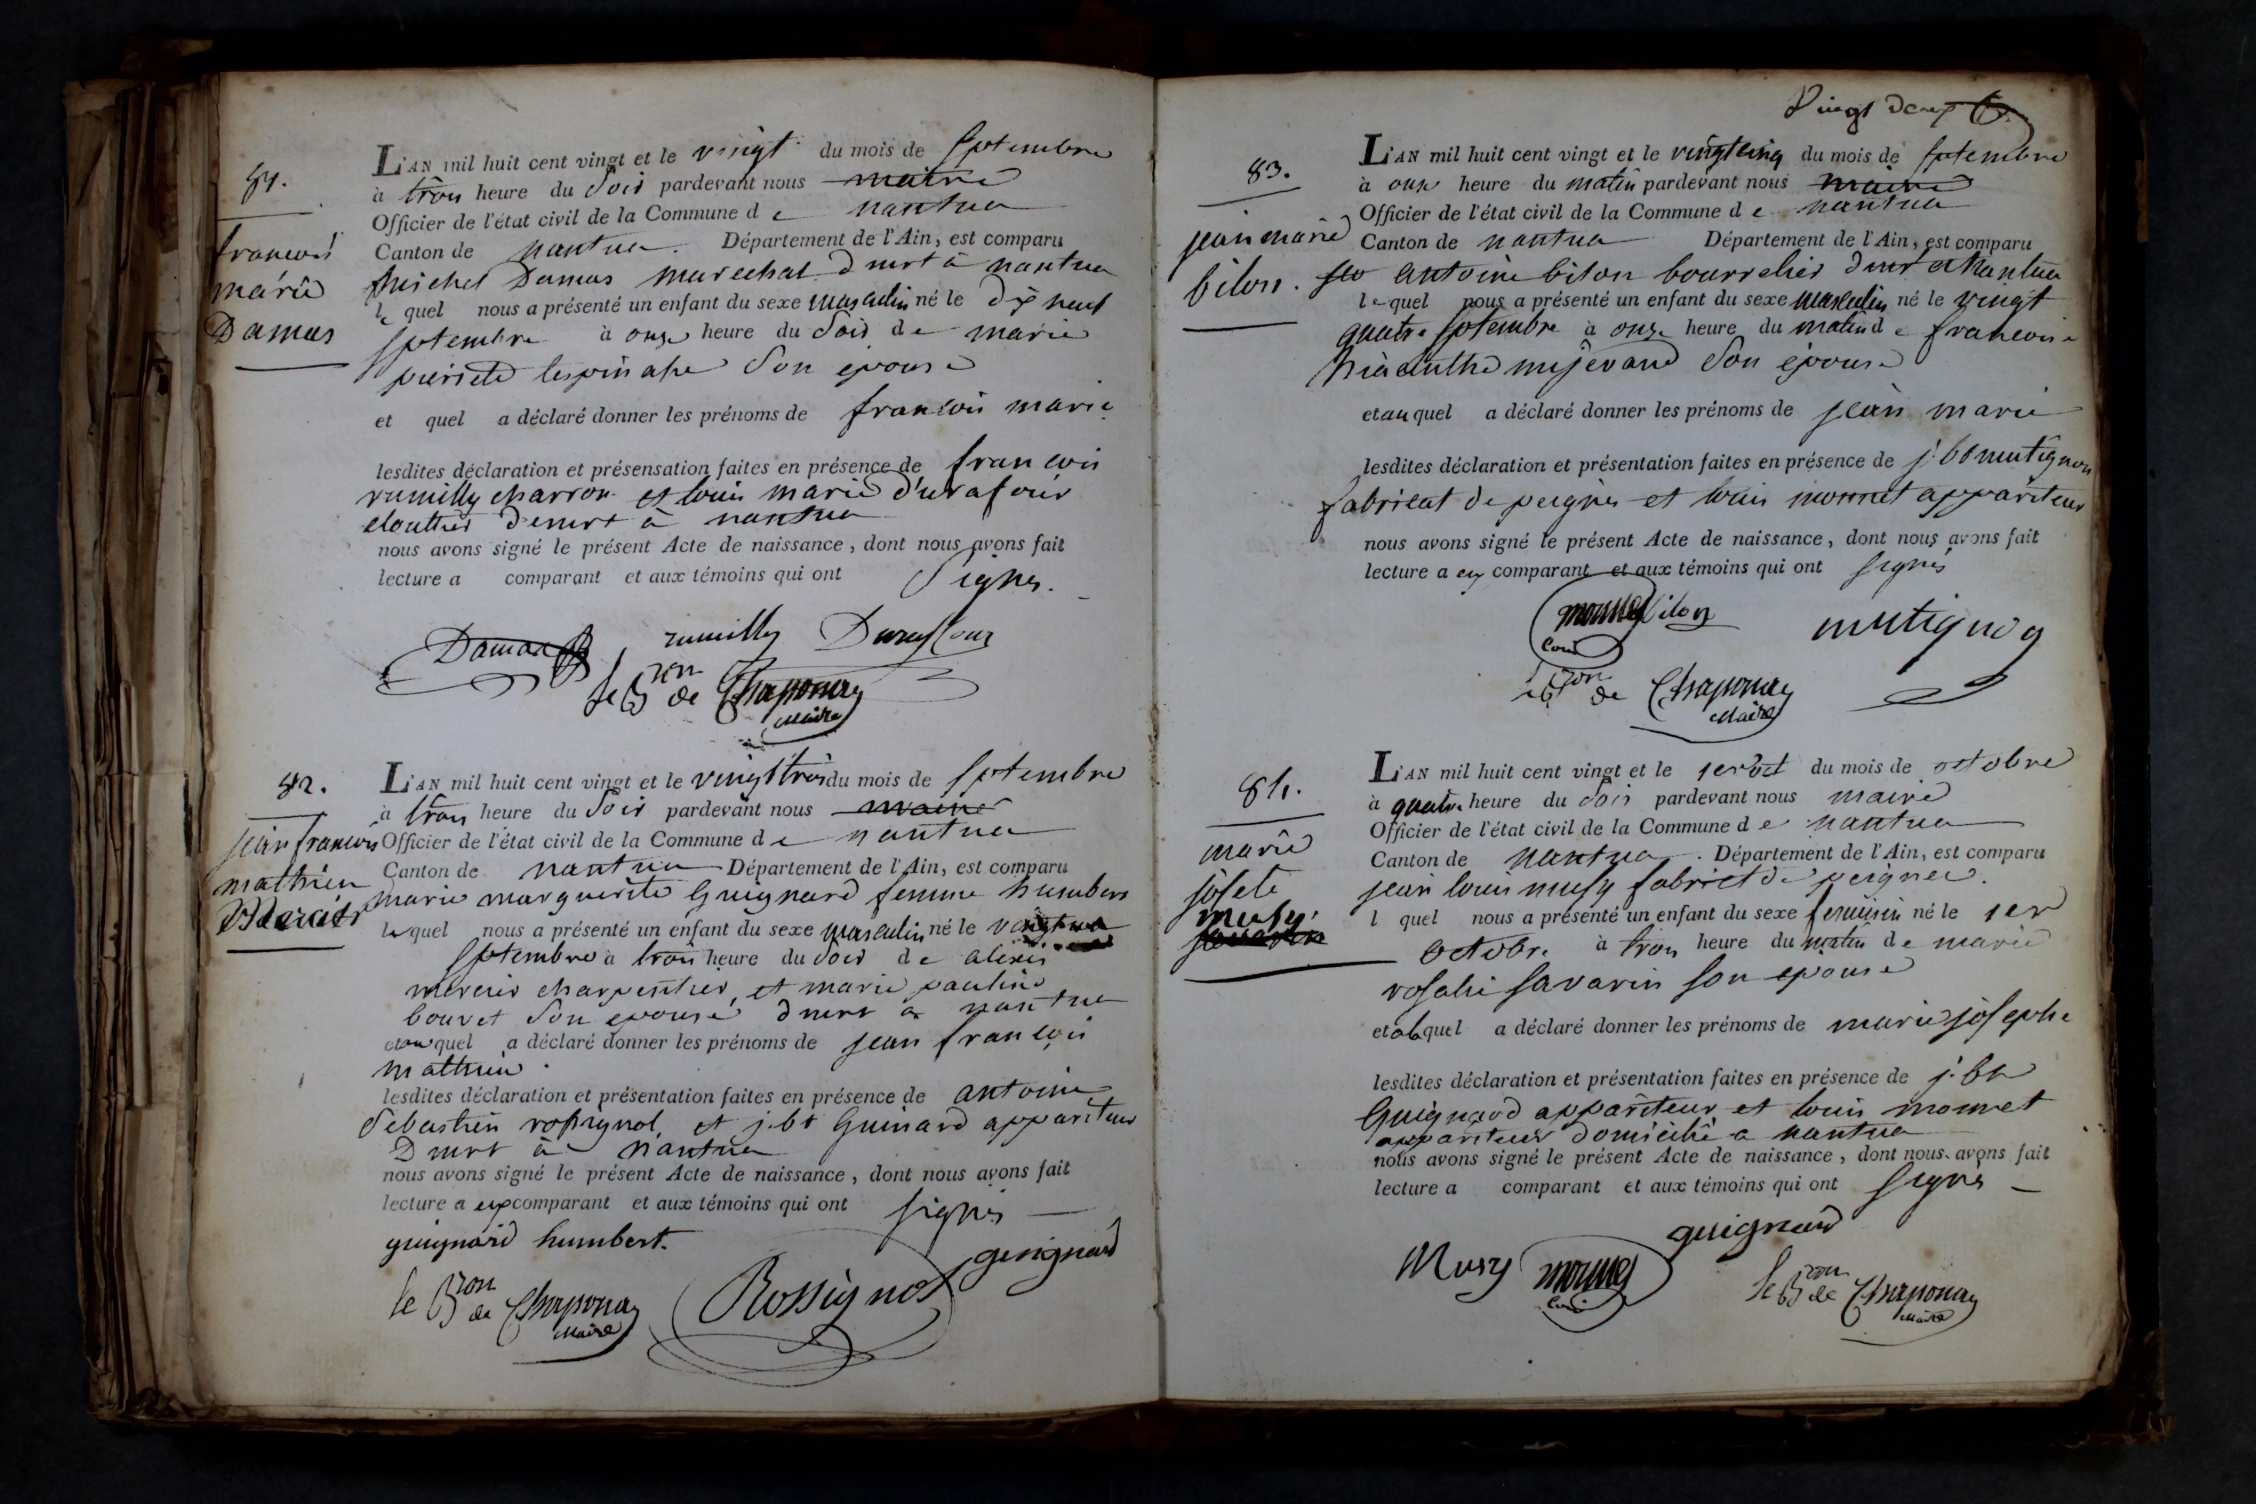 81.
françois
marie
Damas
L'AN mil huit cent vingt et le vingt du mois de septembre
à trois heure du soir pardevant nous maire
Officier de l'état civil de la Commune d e nantua
Canton de nantua Département de l'Ain, est comparu
michel Damas marechal dmrt à nantua
le quel nous a présenté un enfant du sexe masculin né le dix neuf
septembre à onze heure du soir de marie
pierrete lespinasse son epouse
et quel a déclaré donner les prénoms de françois marie
lesdites déclaration et présensation faites en présence de francois
rumilly charron et louis marie d'urafour
cloutier demrt à nantua
nous avons signé le présent Acte de naissance, dont nous avons fait
lecture a comparant et aux témoins qui ont signés.
Damas rumilly Durafour
le Bron de Chaponay
Maire
82.
jean francois
mathieu
Mercier
L'AN mil huit cent vingt et le vingt trois du mois de septembre
à trois heure du soir pardevant nous maire
Officier de l'état civil de la Commune d e nantua
Canton de nantua Département de l'Ain, est comparu
marie marguerite Guignard femme humbert
la quel nous a présenté un enfant du sexe masculin né le vingt
septembre à trois heure du soir de alexis
mercier charpentier, et marie pauline
bouvet son epouse dmrt a nantua
et au quel a déclaré donner les prénoms de jean françois
mathieu.
lesdites déclaration et présentation faites en présence de antoine
Sebastien rossignol, et j. bt Guinard appariteur
Dmrt à nantua
nous avons signé le présent Acte de naissance, dont nous avons fait
lecture a eux comparant et aux témoins qui ont signés
guignard humbert.
guignard
le Bron de Chaponay Rossignol
Maire
Vingt deux
83.
jean marie
bilon.
L'AN mil huit cent vingt et le vingt cinq du mois de septembre
à onze heure du matin pardevant nous maire
Officier de l'état civil de la Commune d e nantua
Canton de nantua Département de l'Ain, est comparu
antoine bilon bourrelier dmrt a Nantua
le quel nous a présenté un enfant du sexe masculin né le vingt
quatre septembre à onze heure du matin d e francoise
hiacinthe mijevand son épouse
et au quel a déclaré donner les prénoms de jean marie
lesdites déclaration et présentation faites en présence de j. bt mutignon
fabricat de peignes et louis monnet appariteur
nous avons signé le présent Acte de naissance, dont nous avons fait
lecture a eux comparant et aux témoins qui ont signés
monnet bilon mutignon
le Bron de Chaponay
Maire
84.
marie
josete
musy.
savarin
L'AN mil huit cent vingt et le 1er oct du mois de octobre
à quatre heure du soir pardevant nous maire
Officier de l'état civil de la Commune d e nantua
Canton de nantua. Département de l'Ain, est comparu
jean louis musy fabrict de peignes.
l quel nous a présenté un enfant du sexe feminin né le 1er
octobre à trois heure du matin de marie
rosalie savarin son epouse
et quel a déclaré donner les prénoms de marie josephe
lesdites déclaration et présentation faites en présence de j. bte
Guignard appariteur et louis monnet
appariteur domicilié a nantua
nous avons signé le présent Acte de naissance, dont nous avons fait
lecture a comparant et aux témoins qui ont signés
guignard
Musy monnet le Bron de Chaponay
Maire